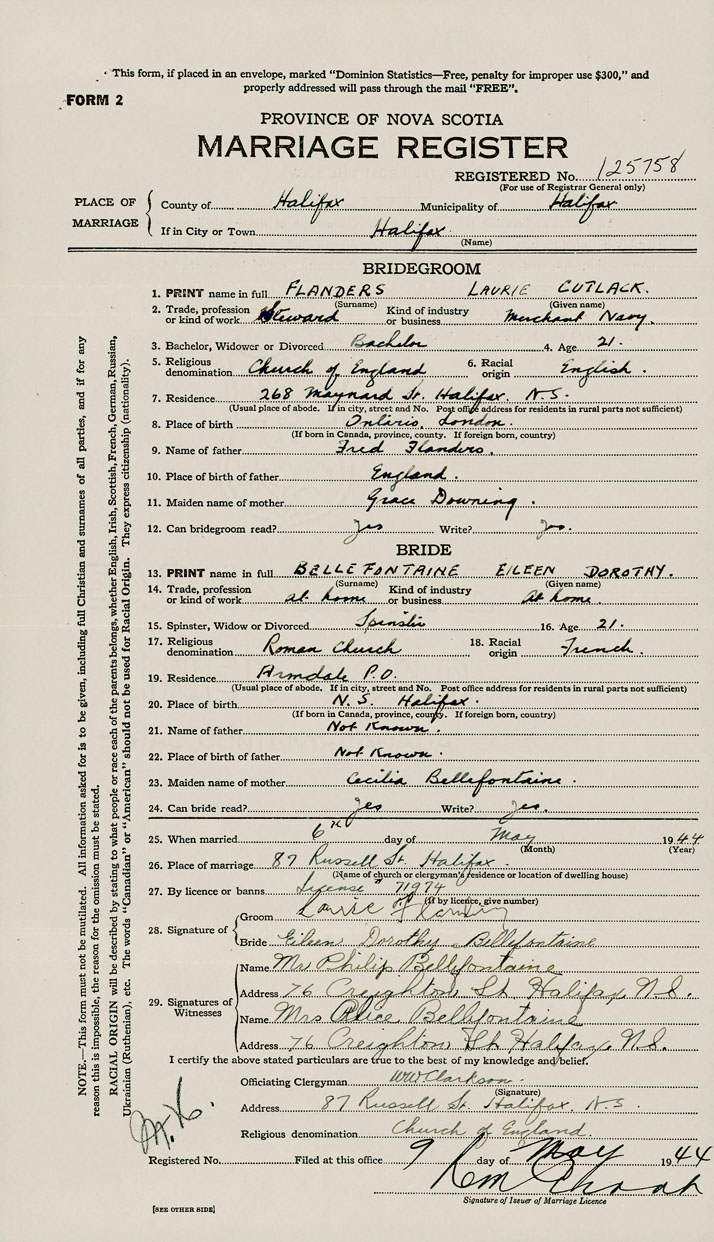 This form, if placed in an envelope, marked "Dominion Statistics—Free, penalty for improper use $300," and
properly addressed will pass through the mail "FREE".
FORM 2
PROVINCE OF NOVA SCOTIA
MARRIAGE REGISTER
REGISTERED No. 125758
(For use of Registrar General only)
PLACE OF MARRIAGE
County of Halifax Municipality of Halifax
If in City or Town Halifax
(Name)
BRIDEGROOM
1. PRINT name in full FLANDERS LAURIE CUTLACK.
(Surname) (Given name)
2. Trade, profession or kind of work Steward Kind of industry or business Merchant Navy.
3. Bachelor, Widower or Divorced Bachelor 4. Age 21.
5. Religious denomination Church of England 6. Racial origin English.
7. Residence 268 Maynard St. Halifax. N.S.
(Usual place of abode. If in city, street and No. Post office address for residents in rural parts not sufficient)
8. Place of birth Ontario, London.
(If born in Canada, province, county. If foreign born, country)
9. Name of father Fred Flanders.
10. Place of birth of father England.
11. Maiden name of mother Grace Downing.
12. Can bridegroom read? Yes Write? Yes.
BRIDE
13. PRINT name in full BELLEFONTAINE EILEEN DOROTHY.
(Surname) (Given name)
14. Trade, profession or kind of work at home Kind of industry or business At home.
15. Spinster, Widow or Divorced Spinster 16. Age 21.
17. Religious denomination Roman Church 18. Racial origin French.
19. Residence Armdale P.O.
(Usual place of abode. If in city, street and No. Post office address for residents in rural parts not sufficient)
20. Place of birth N.S. Halifax.
(If born in Canada, province, county. If foreign born, country)
21. Name of father Not Known.
22. Place of birth of father Not Known.
23. Maiden name of mother Cecilia Bellefontaine.
24. Can bride read? Yes Write? Yes.
25. When married 6th day of May 1944
(Month) (Year)
26. Place of marriage 87 Russell St. Halifax.
(Name of church or clergyman's residence or location of dwelling house)
27. By licence or banns License # 71974
(If by licence, give number)
28. Signature of
Groom Laurie Flanders
Bride Eileen Dorothy Bellefontaine
29. Signatures of Witnesses
Name Mr Philip Bellefontaine
Address 76 Creighton St Halifax, N.S.
Name Mrs Alice Bellefontaine
Address 76 Creighton St Halifax, N.S.
I certify the above stated particulars are true to the best of my knowledge and belief.
Officiating Clergyman Clarkson.
(Signature)
Address 87 Russell St. Halifax. N.S.
Religious denomination Church of England.
Registered No. Filed at this office 9 day of May 1944
Signature of Issuer of Marriage Licence
[SEE OTHER SIDE]
NOTE.—This form must not be mutilated. All information asked for is to be given, including full Christian and surnames of all parties, and if for any
reason this is impossible, the reason for the omission must be stated.
RACIAL ORIGIN will be described by stating to what people or race each of the parents belongs, whether English, Irish, Scottish, French, German, Russian,
Ukrainian (Ruthenian), etc. The words "Canadian" or "American" should not be used for Racial Origin. They express citizenship (nationality).